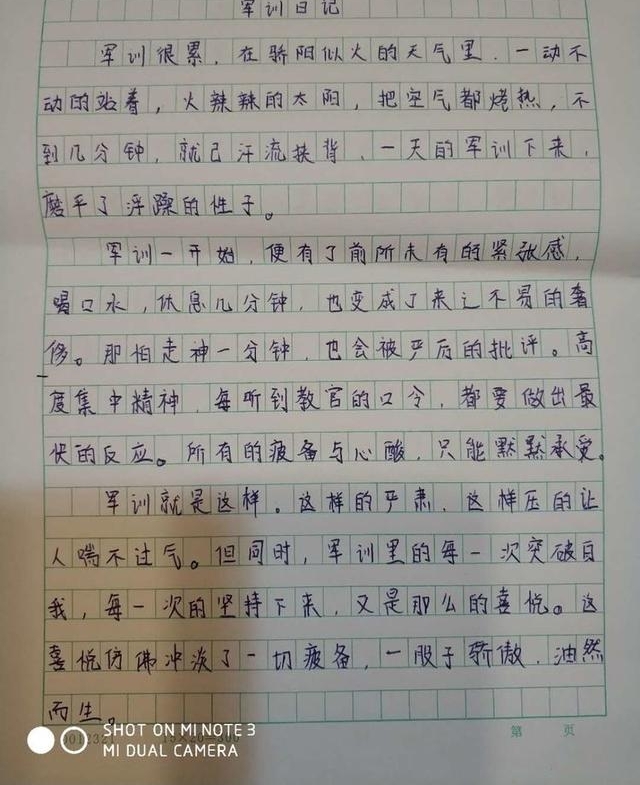 军训日记
军训很累，在骄阳似火的天气里，一动不
动的站着，火辣辣的太阳，把空气都烤热，不
到几分钟，就已汗流挟背，一天的军训下来，
磨平了浮躁的性子。
军训一开始，便有了前所未有的紧张感，
喝口水，休息几分钟，也变成了来之不易的奢
侈。那怕走神一分钟，也会被严厉的批评。高
度集中精神，每听到教官的口令，都要做出最
快的反应。所有的疲备与心酸，只能默默承受。
军训就是这样。这样的严肃，这样压的让
人喘不过气。但同时，军训里的每一次突破自
我，每一次的坚持下来，又是那么的喜悦。这
喜悦仿佛冲淡了一切疲备，一股子骄傲，油然
而生。
SHOT ON MI NOTE 3
MI DUAL CAMERA
15×20=300
第 页